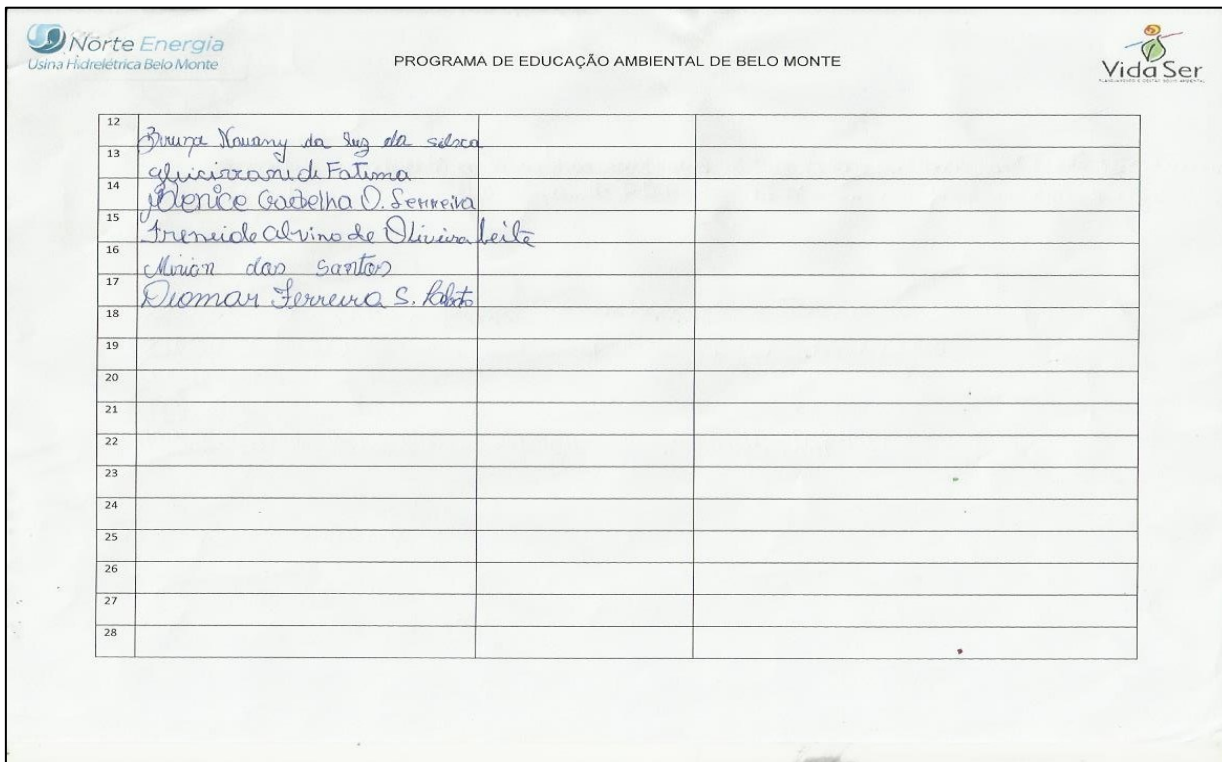 Norte Energia
Usina Hidrelétrica Belo Monte
PROGRAMA DE EDUCAÇÃO AMBIENTAL DE BELO MONTE
Vida Ser
12 Bruna Nauany da Luz da silva
13 de Fatima
14 O. Ferreira
15 de Oliveira Leite
16 Mirian dos Santos
17 Diomar Ferreira S.
18
19
20
21
22
23
24
25
26
27
28